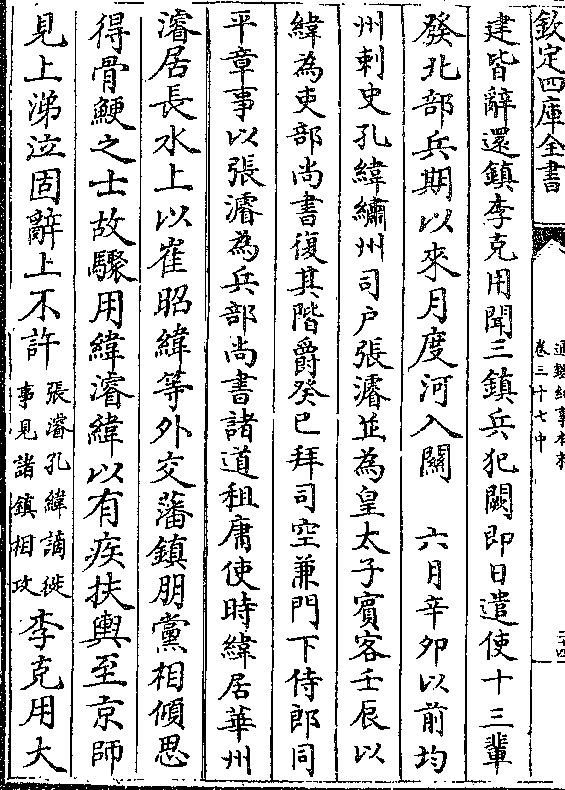 欽定四庫全書
通鑑紀事本末
卷三十七中
建皆辭還鎮李克用聞三鎮兵犯闕即日遣使十三輩
發北部兵期以來月度河入關　六月辛卯以前均
州刺史孔緯繡州司户張濬並為皇太子賓客壬辰以
緯為吏部尚書復其階爵癸巳拜司空兼門下侍郎同
平章事以張濬為兵部尚書諸道租庸使時緯居華州
濬居長水上以崔昭緯等外交藩鎮朋黨相傾思
得骨鯁之士故驟用緯濬緯以有疾扶輿至京師
見上涕泣固辭上不許張濬孔緯謫徙事見諸鎮相攻李克用大